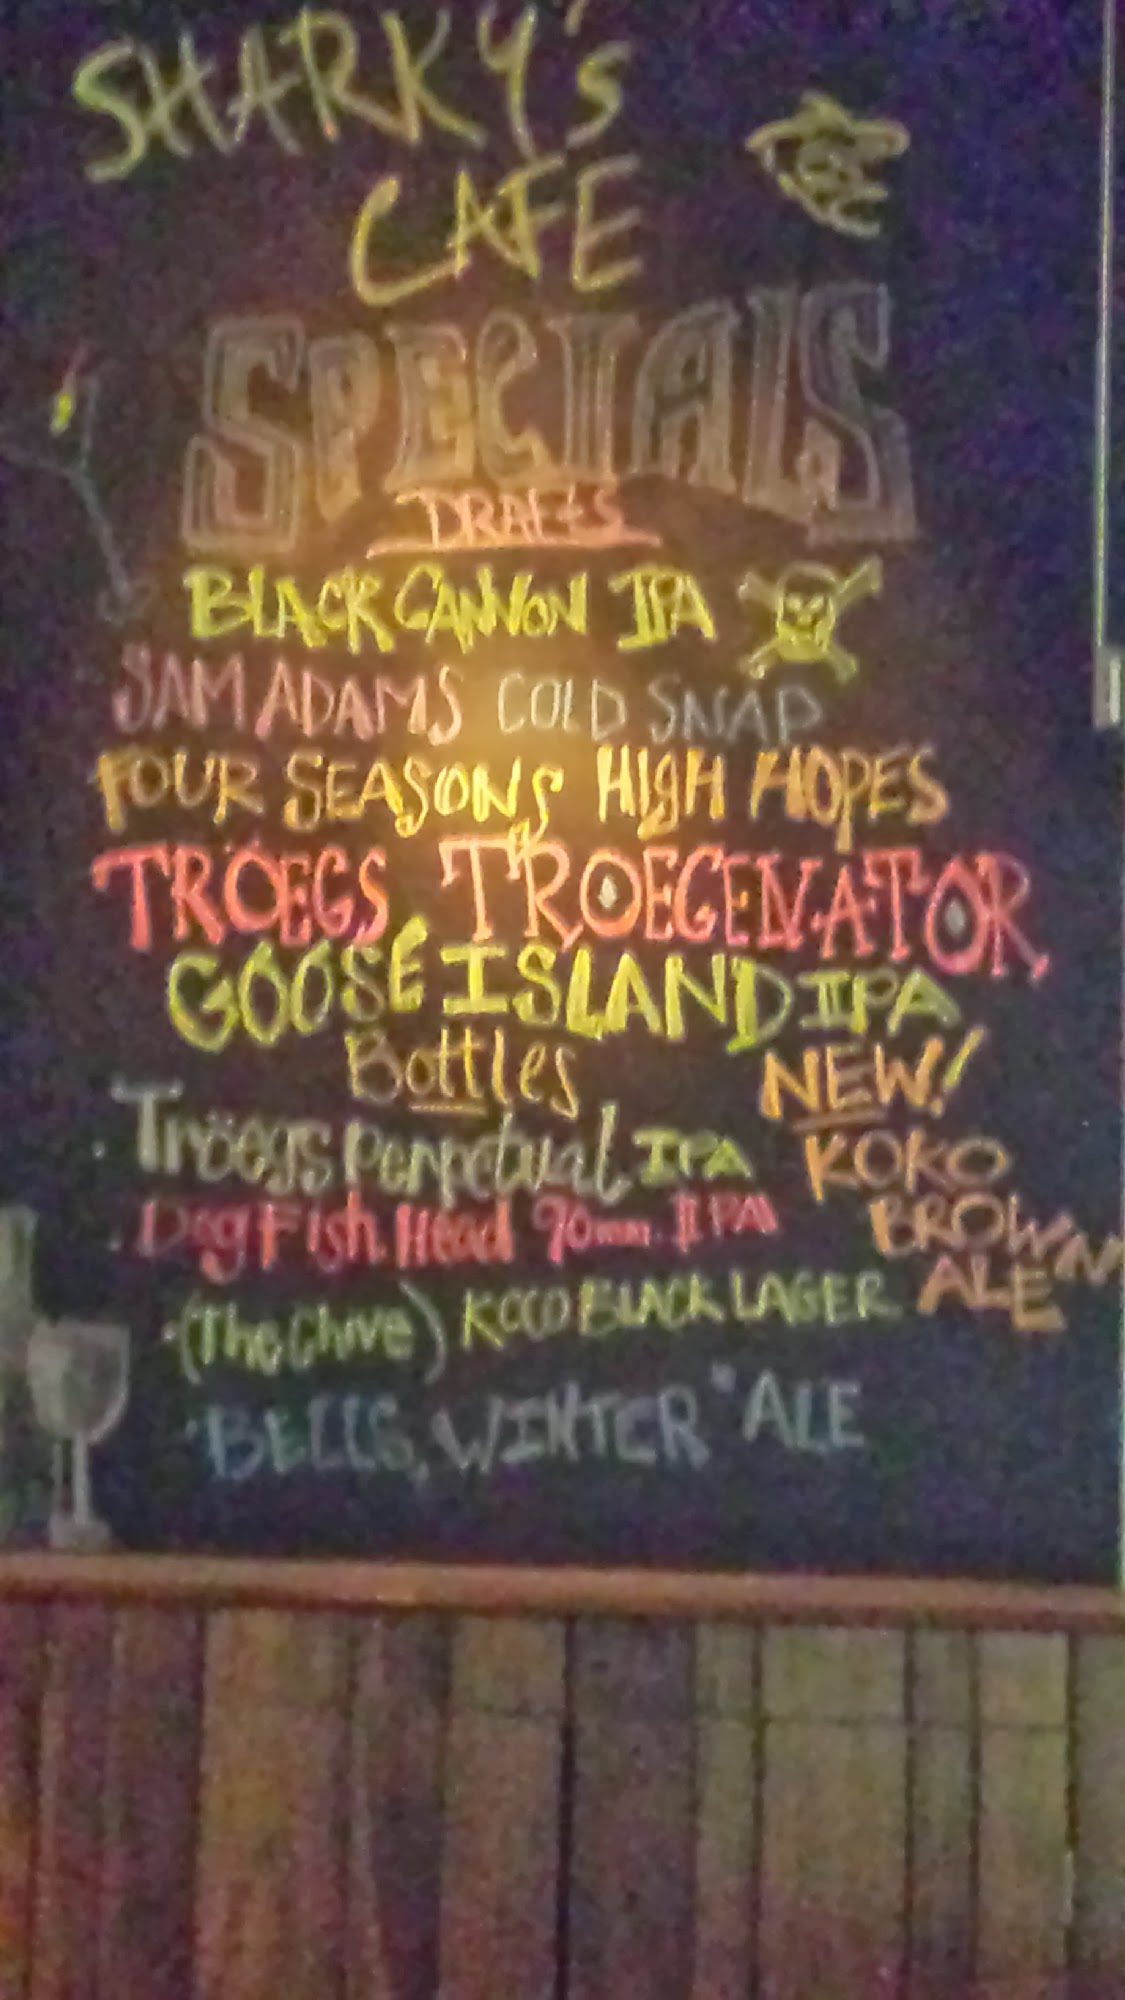 SHARKY's
CAFE
SPECIALS
DRAFtS
BLACK CANNON IPA
SAM ADAMS COLD SNAP
FOUR SEASONS HIgH HOPES
TRÖEGS TROEGENATOR
GOOSE ISLAND IPA
Bottles
Tröegs Perpetual IPA
DogFish Head 90min. IPA
(The Chive) KOCO BLACK LAGER
"BELLS, WINTER" ALE
NEW!
KOKO
BROWN
ALE